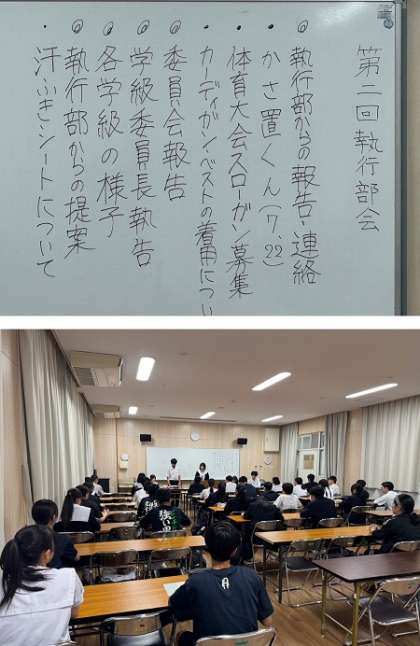 第二回執行部会
◎執行部からの報告・連絡
・かさ置くん(7、22)
・体育大会スローガン募集
・カーディガン・ベストの着用につい
◎委員会報告
◎学級委員長執告
◎各学級の様子
◎執行部からの提案
・汗ふきシートについて